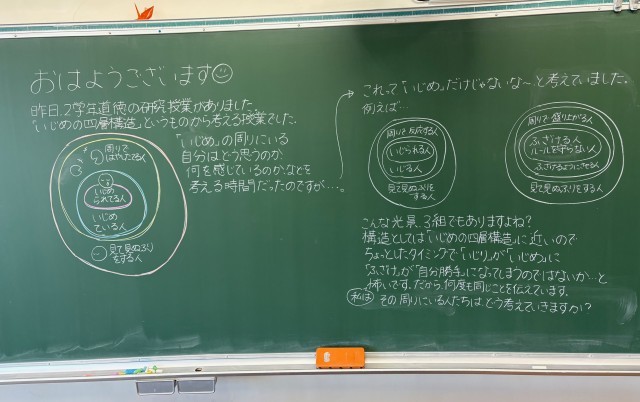 おはようございます
昨日、2学年道徳の研究授業がありました。
「いじめの四層構造」というものから考える授業でした。
「いじめ」の周りにいる
自分はどう思うのか
何を感じているのか、などを
考える時間だったのですが…。
周りで
はやしたてる人
いじめ
られてる人
いじめ
ている人
見て見ぬふり
をする人
これって「いじめ」だけじゃないな～と考えていました。
例えば…
周りで反応する人
いじられる人
いじる人
見て見ぬふりを
する人
周りで盛り上がる人
ふざける人
ルールを守らない人
ふざけるようにさせる人
見て見ぬふりをする人
こんな光景、3組でもありますよね？
構造としては「いじめの四層構造」に近いので
ちょっとしたタイミングで「いじり」が「いじめ」に
「ふざけ」が「自分勝手」になってしまうのではないか…と
怖いです。だから、何度も同じことを伝えています。
私は
その周りにいる人たちは、どう考えていきますか？